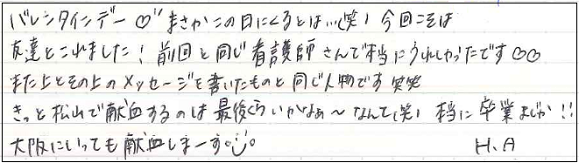 バレンタインデー♡" まさかこの日にくるとは…(笑) 今回こそは
友達とこれました! 前回と同じ看護師さんで本当にうれしかったです♡♡
また上とその上のメッセージを書いたものと同じ人物です 笑笑
きっと松山で献血するのは最後くらいかなぁ〜なんて(笑) 本当に卒業まぢか!!
大阪にいっても献血しまーす。 H.A